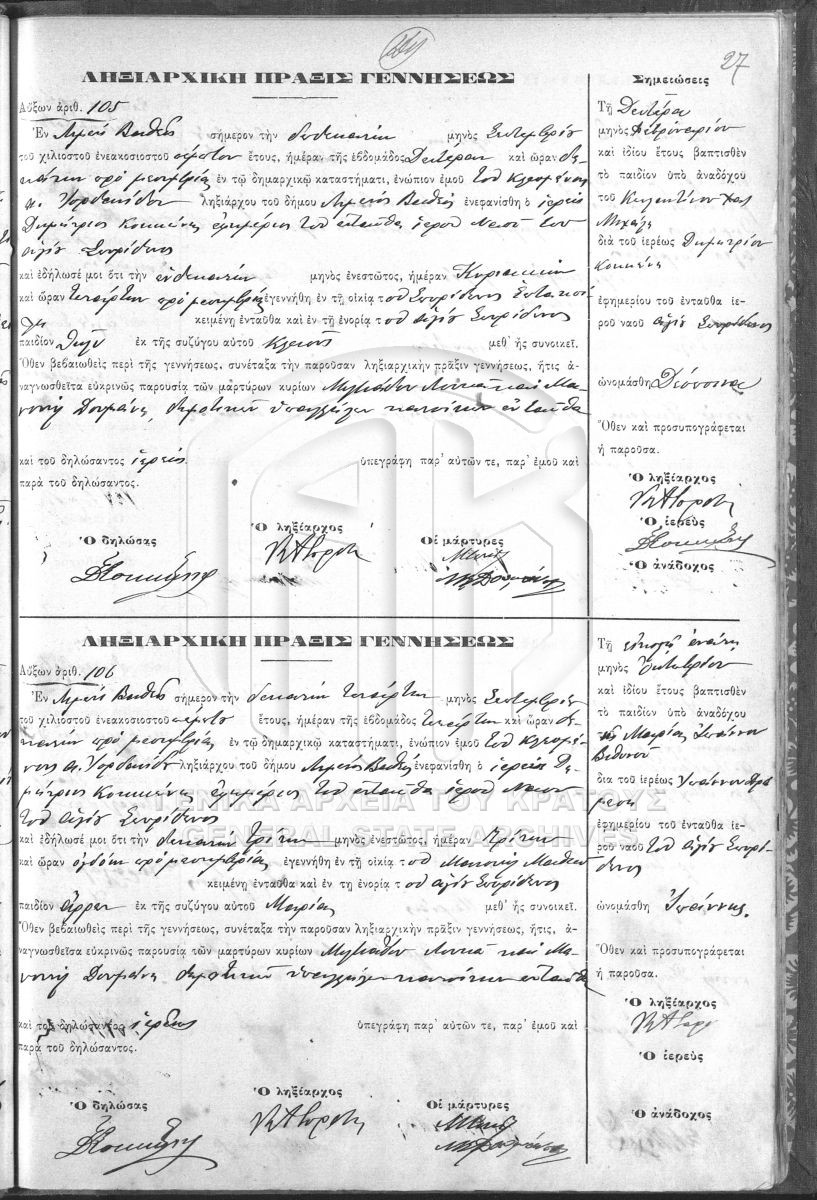 27
ΛΗΞΙΑΡΧΙΚΗ ΠΡΑΞΙΣ ΓΕΝΝΗΣΕΩΣ
Αὔξων ἀριθ. 105
Ἐν Λιμένι Βαθέος σήμερον τὴν δωδεκάτην μηνὸς Σεπτεμβρίου
τοῦ χιλιοστοῦ ἐνεακοσιοστοῦ πρώτου ἔτους, ἡμέραν τῆς ἑβδομάδος Δευτέραν καὶ ὥραν δε-
κάτην πρὸ μεσημβρίας ἐν τῷ δημαρχικῷ καταστήματι, ἐνώπιον ἐμοῦ τοῦ Κλεομένους
ληξιάρχου τοῦ δήμου Λιμένος Βαθέος ἐνεφανίσθη ὁ ἱερεὺς
Δημήτριος Κοκκώνης ἐφημέριος τοῦ ἐνταῦθα ἱεροῦ Ναοῦ τοῦ
ἁγίου Σπυρίδωνος
καὶ ἐδήλωσέ μοι ὅτι τὴν ἑνδεκάτην μηνὸς ἐνεστῶτος, ἡμέραν Κυριακὴν
καὶ ὥραν τετάρτην πρὸ μεσημβρίας ἐγεννήθη ἐν τῇ οἰκίᾳ τοῦ Σπυρίδωνος
κειμένῃ ἐνταῦθα καὶ ἐν τῇ ἐνορίᾳ τοῦ ἁγίου Σπυρίδωνος
παιδίον θῆλυ ἐκ τῆς συζύγου αὐτοῦ μεθ' ἧς συνοικεῖ.
Ὅθεν βεβαιωθεὶς περὶ τῆς γεννήσεως, συνέταξα τὴν παροῦσαν ληξιαρχικὴν πρᾶξιν γεννήσεως, ἥτις ἀ-
ναγνωσθεῖσα εὐκρινῶς παρουσίᾳ τῶν μαρτύρων κυρίων Μιλτιάδου Λουκᾶ καὶ Μα-
νουὴλ Δουμάνη, δημοτικῶν ὑπαλλήλων κατοίκων ἐνταῦθα
καὶ τοῦ δηλώσαντος ἱερέως ὑπεγράφη παρ' αὐτῶν τε, παρ' ἐμοῦ καὶ
παρὰ τοῦ δηλώσαντος.
Ὁ δηλώσας Ὁ ληξίαρχος Οἱ μάρτυρες
Σημειώσεις
Τῇ Δευτέρᾳ
μηνὸς Φεβρουαρίου
καὶ ἰδίου ἔτους βαπτισθὲν
τὸ παιδίον ὑπὸ ἀναδόχου
τοῦ
διὰ τοῦ ἱερέως Δημητρίου
Κοκκώνη
ἐφημερίου τοῦ ἐνταῦθα ἱε-
ροῦ ναοῦ ἁγίου Σπυρίδωνος
ὠνομάσθη Δέσποινα
Ὅθεν καὶ προσυπογράφεται
ἡ παροῦσα.
Ὁ ληξίαρχος
Ὁ ἱερεὺς
Ὁ ἀνάδοχος
ΛΗΞΙΑΡΧΙΚΗ ΠΡΑΞΙΣ ΓΕΝΝΗΣΕΩΣ
Αὔξων ἀριθ. 106
Ἐν Λιμένι Βαθέος σήμερον τὴν δεκάτην τετάρτην μηνὸς Σεπτεμβρίου
τοῦ χιλιοστοῦ ἐνεακοσιοστοῦ πρώτου ἔτους, ἡμέραν τῆς ἑβδομάδος τετάρτην καὶ ὥραν δε-
κάτην πρὸ μεσημβρίας ἐν τῷ δημαρχικῷ καταστήματι, ἐνώπιον ἐμοῦ τοῦ Κλεομέ-
νους ληξιάρχου τοῦ δήμου Λιμένος Βαθέος ἐνεφανίσθη ὁ ἱερεὺς Δη-
μήτριος Κοκκώνης ἐφημέριος τοῦ ἐνταῦθα ἱεροῦ Ναοῦ
τοῦ ἁγίου Σπυρίδωνος
καὶ ἐδήλωσέ μοι ὅτι τὴν δεκάτην τρίτην μηνὸς ἐνεστῶτος, ἡμέραν Τρίτην
καὶ ὥραν ὀγδόην πρὸ μεσημβρίας ἐγεννήθη ἐν τῇ οἰκίᾳ τοῦ
κειμένῃ ἐνταῦθα καὶ ἐν τῃ ἐνορίᾳ τοῦ ἁγίου Σπυρίδωνος
παιδίον ἄρρεν ἐκ τῆς συζύγου αὐτοῦ Μαρίας μεθ' ἧς συνοικεῖ.
Ὅθεν βεβαιωθεὶς περὶ τῆς γεννήσεως, συνέταξα τὴν παροῦσαν ληξιαρχικὴν πρᾶξιν γεννήσεως, ἥτις, ἀ-
ναγνωσθεῖσα εὐκρινῶς παρουσίᾳ τῶν μαρτύρων κυρίων Μιλτιάδου Λουκᾶ καὶ Μα-
νουὴλ Δουμάνη, δημοτικῶν ὑπαλλήλων κατοίκων ἐνταῦθα
καὶ τοῦ δηλώσαντος ἱερέως ὑπεγράφη παρ' αὐτῶν τε, παρ' ἐμοῦ καὶ
παρὰ τοῦ δηλώσαντος.
Ὁ δηλώσας Ὁ ληξίαρχος Οἱ μάρτυρες
Τῇ εἰκοστῇ ἐνάτῃ
μηνὸς Ὀκτωβρίου
καὶ ἰδίου ἔτους βαπτισθὲν
τὸ παιδίον ὑπὸ ἀναδόχου
τῆς Μαρίας Ἰωάννου
δια τοῦ ἱερέως Ἰωάννου
ἐφημερίου τοῦ ἐνταῦθα ἱε-
ροῦ ναοῦ τοῦ ἁγίου Σπυρί-
δωνος
ὠνομάσθη Ἰωάννης
Ὅθεν καὶ προσυπογράφεται
ἡ παροῦσα.
Ὁ ληξίαρχος
Ὁ ἱερεὺς
Ὁ ἀνάδοχος
ΓΕΝΙΚΑ ΑΡΧΕΙΑ ΤΟΥ ΚΡΑΤΟΥΣ
GENERAL STATE ARCHIVES